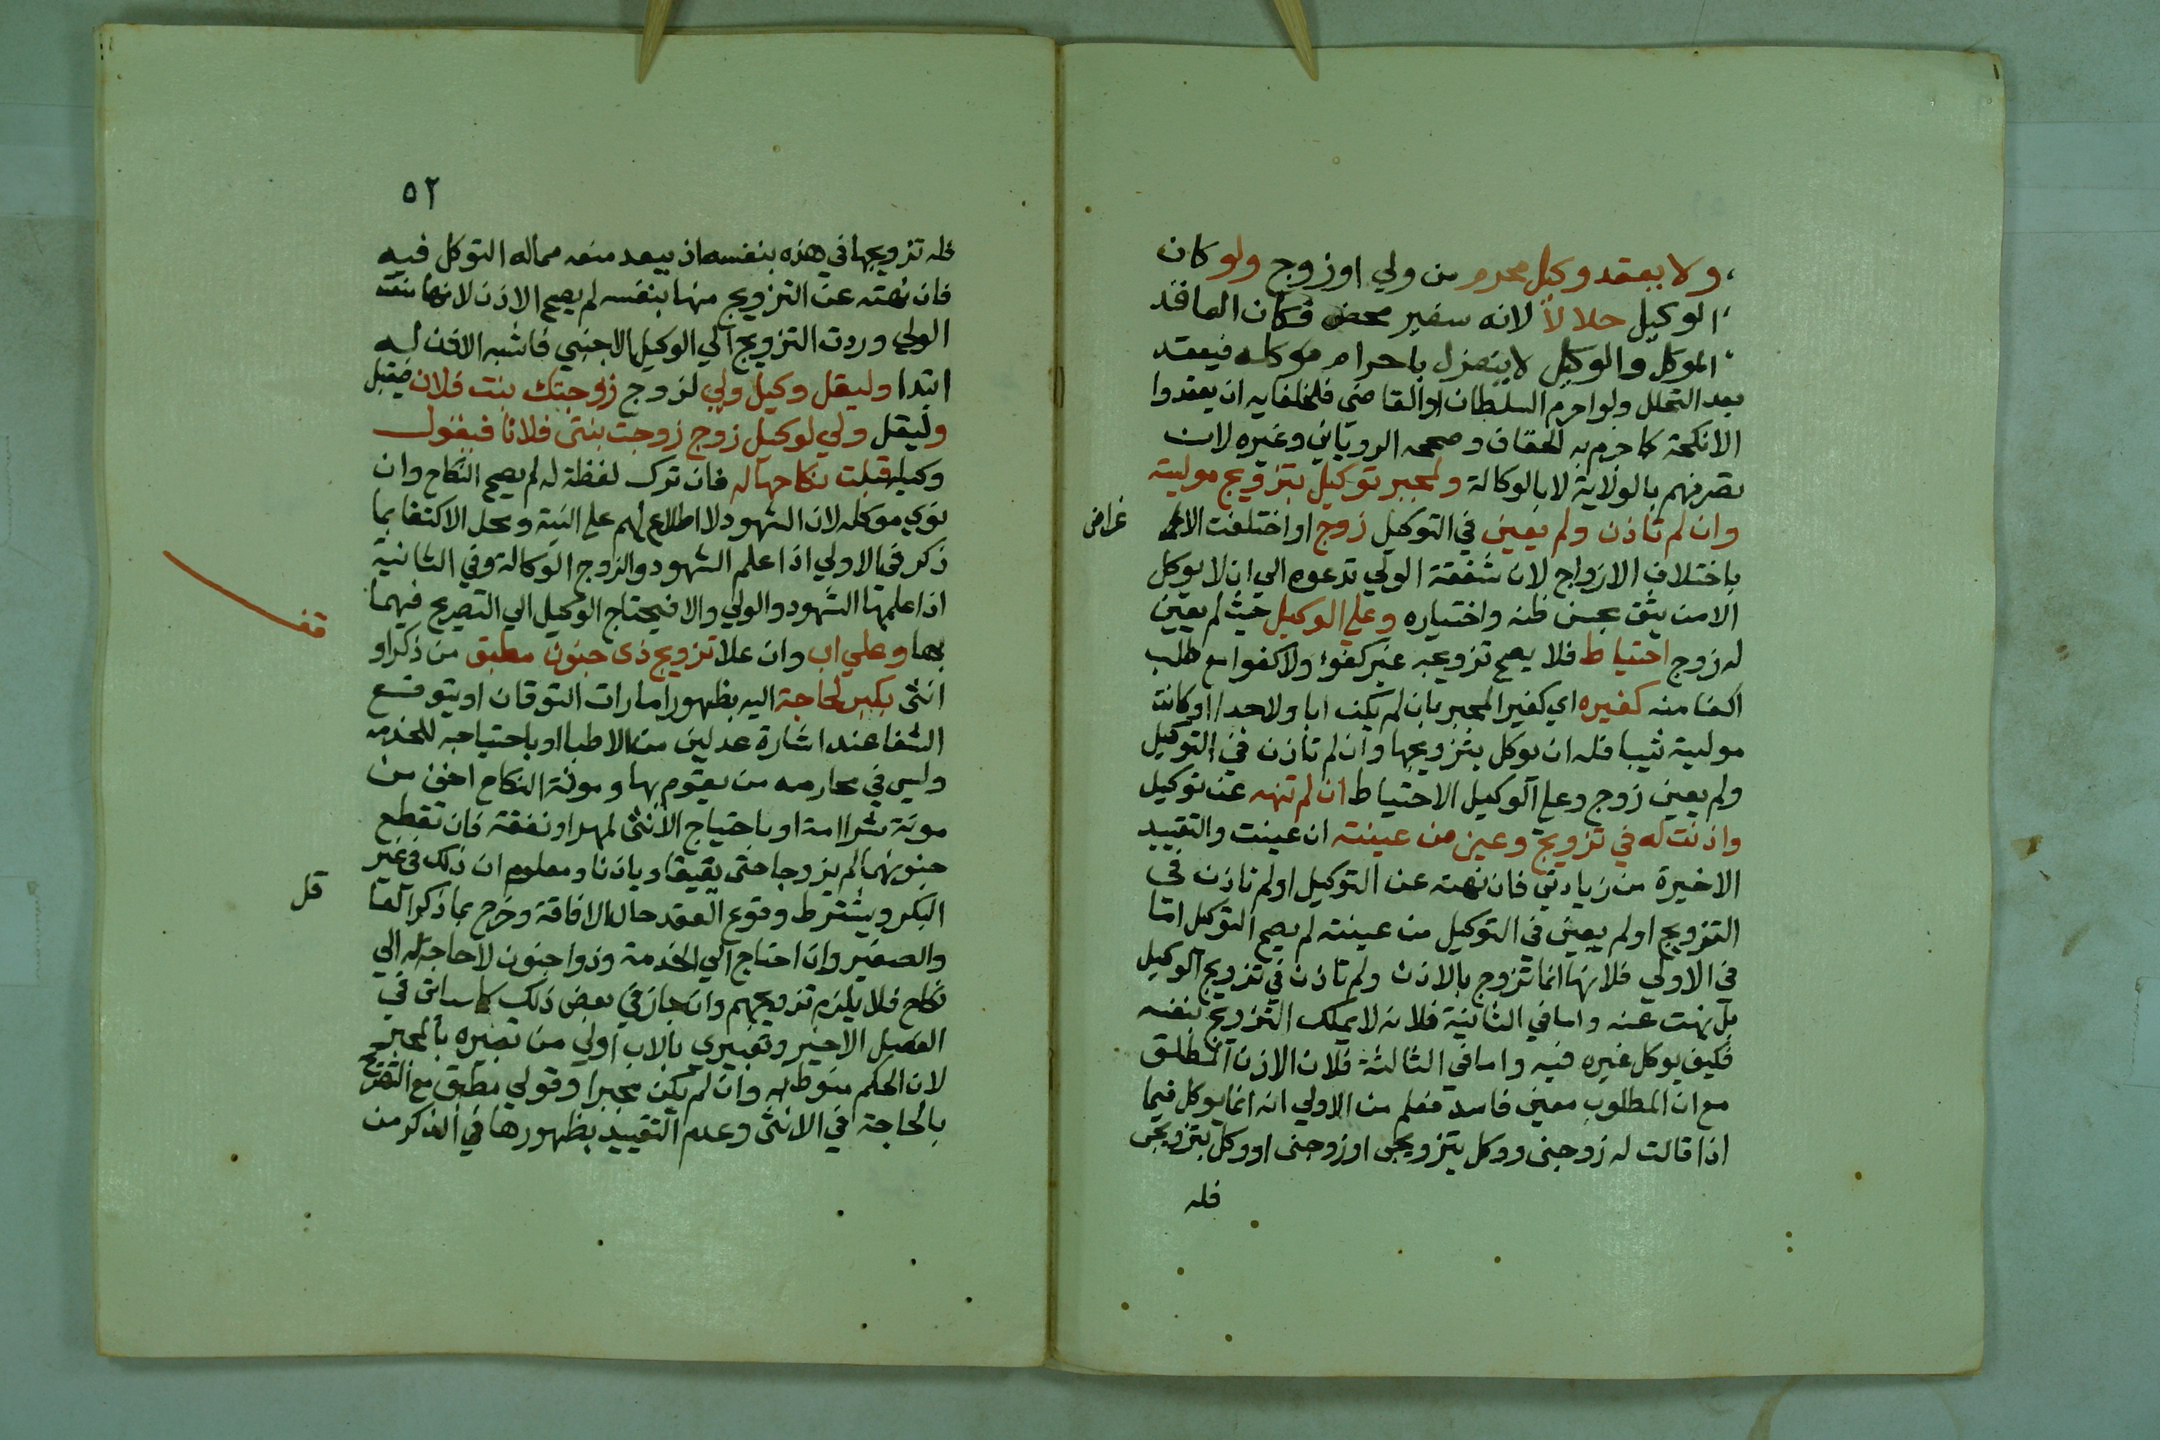 ولا يعقد وكيل محرم من ولي او زوج ولو كان
الوكيل حلالا لانه سفير محض فكان العاقد
الموكل والوكيل لا ينعزل باحرام موكله فيعقد
بعد التحلل ولو احرم السلطان او القاضي فلخلفايه ان يعقدوا
الانكحة كما جزم به الخفاف وصححه الروياني وغيره لان
تصرفهم بالولاية لا بالوكالة ولمجبر توكيل بتزويج موليته
وان لم تاذن ولم يعين في التوكيل زوج او اختلفت الا
غراض
باختلاف الازواج لان شفقة الولي تدعوه الي ان لا يوكل
الا من يثق بحسن ظنه واختياره وعلي الوكيل حيث لم يعين
له زوج احتياط فلا يصح تزويجه غير كفوء ولا كفوا مع طلب
اكفا منه كغيره اي كغير المجبر بان لم يكن ابا ولا جدا او كانت
موليته ثيبا فله ان يوكل بتزويجها وان لم تاذن في التوكيل
ولم يعين زوج وعلى الوكيل الاحتياط ان لم تنهه عن توكيل
واذنت له في تزويج وعين من عينته ان عينت والتقييد
الاخيرة من زيادتي فان نهته عن التوكيل او لم تاذن في
التزويج او لم يعين في التوكيل من عينته لم يصح التوكيل اما
في الاولي فلانها انما تزوج بالاذن ولم تاذن في تزويج الوكيل
بل نهت عنه واما في الثانية فلانه لا يملك التزويج بنفسه
فكيف يوكل غيره فيه واما في الثالثة فلان الاذن المطلق
مع ان المطلوب معين فاسد فعلم من الاولي انه انما يوكل فيما
اذا قالت له زوجني ووكل بتزويجي او زوجني او وكل بتزويجي
فله
٥٢
فله تزويجها في هذه بنفسه اذ يبعد منعه مما له التوكل فيه
فان نهته عن التزويج منها بنفسه لم يصح الاذن لانها منعت
الولي وردت التزويج الي الوكيل الاجنبي فاشبه الاذن ليه
ابتدا وليقل وكيل ولي لزوج زوجتك بنت فلان فيقبل
وليقل ولي لوكيل زوج زوجت بنتي فلانا فيقول
وكيله قبلت نكاحها له فان ترك لفظة له لم يصح النكاح وان
نوي موكله لان الشهود لا اطلاع لهم علي النية ومحل الاكتفا بما
ذكر في الاولي اذا علم الشهود والزوج الوكالة وفي الثانية
اذا علمها الشهود والولي والا فيحتاج الوكيل الي التصريح فيهما
قف
بها وعلي اب وان علا تزويج ذي جنون مطبق من ذكر او
انثى بكبر لحاجة اليه بظهور امارات التوقان او بتوقع
الشفا عند اشارة عدلين من الاطبا او باحتياجه للخدمه
وليس في محارمه من يقوم بها ومونة النكاح اخف من
مونة شرا امة او باحتياج الانثى لمهر او نفقة فان تقطع
جنونهما لم يزوجا حتى يفيقا وياذنا ومعلوم ان ذلك في غير
قل
البكر ويشترط وقوع العقد حال الافاقة وخرج بما ذكر العا
والصغير وان احتاج الي الخدمة وذوا جنون لا حاجة له الي
نكاح فلا يلزم تزويجهم وان جاز في بعض ذلك كما سياتي في
الفصل الاخير وتعبيري بالاب اولي من تعبيره بالمجبر
لان الحكم منوط به وان لم يكن مجبرا وقولي مطبق مع التصريح
بالحاجة في الانثى وعدم التقييد بظهورها في الذكر من